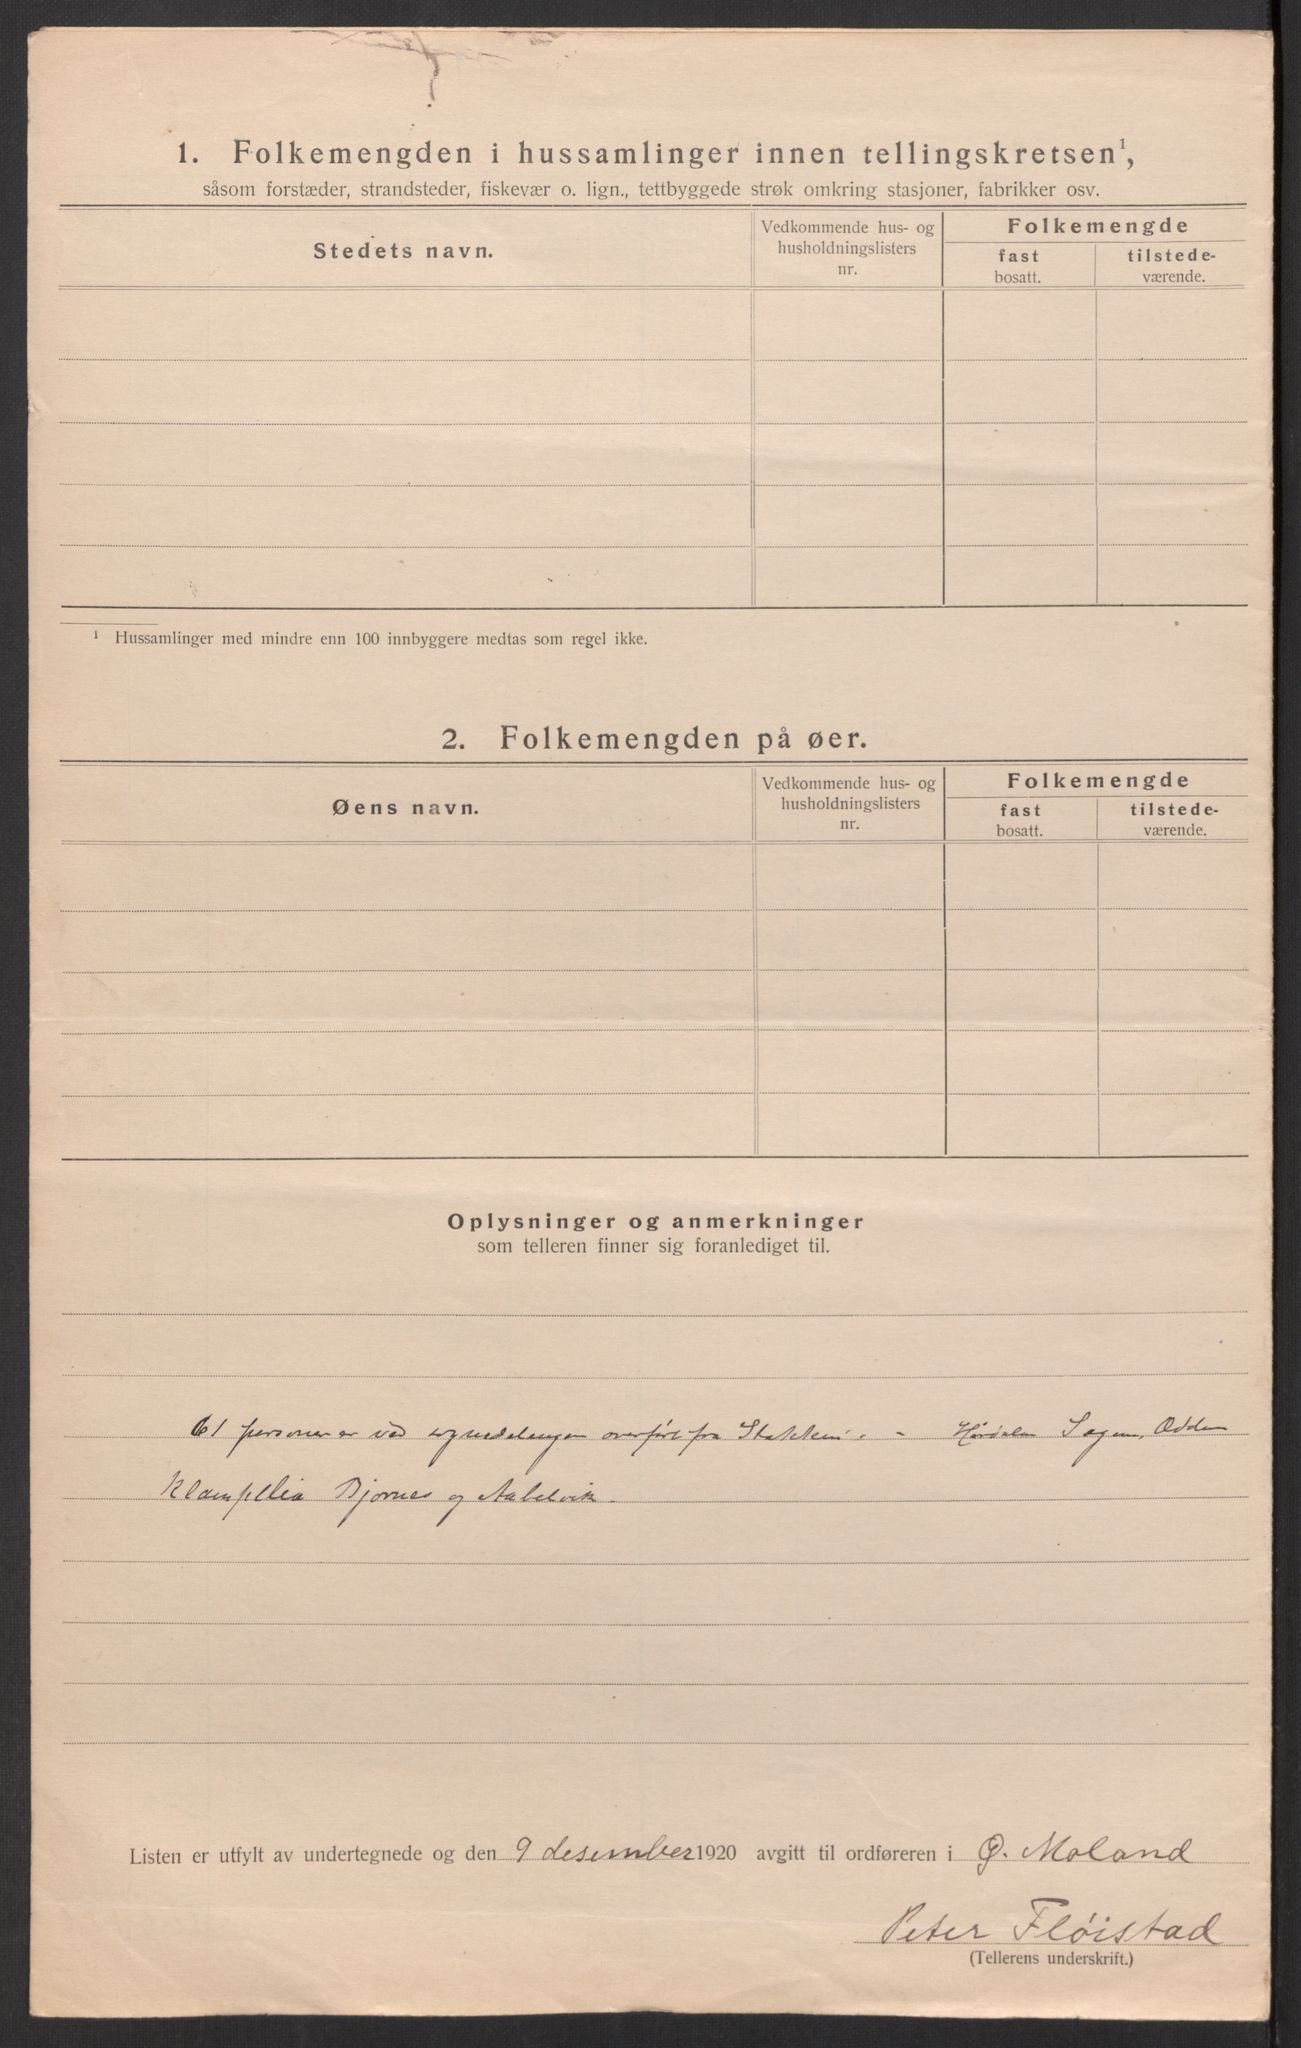 1. Folkemengden i hussamlinger innen tellingskretsen¹,
såsom forstæder, strandsteder, fiskevær o. lign., tettbyggede strøk omkring stasjoner, fabrikker osv.
Stedets navn.
Vedkommende hus- og
husholdningslisters
nr.
Folkemengde
fast
bosatt.
tilstede-
værende.
¹ Hussamlinger med mindre enn 100 innbyggere medtas som regel ikke.
2. Folkemengden på øer.
Øens navn.
Vedkommende hus- og
husholdningslisters
nr.
Folkemengde
fast
bosatt.
tilstede-
værende.
Oplysninger og anmerkninger
som telleren finner sig foranlediget til.
61 personer er ved overført fra Sagene, Odden
Bjørnes og
Listen er utfylt av undertegnede og den 9 desember 1920 avgitt til ordføreren i Ø. Moland
Peter Fløistad
(Tellerens underskrift.)